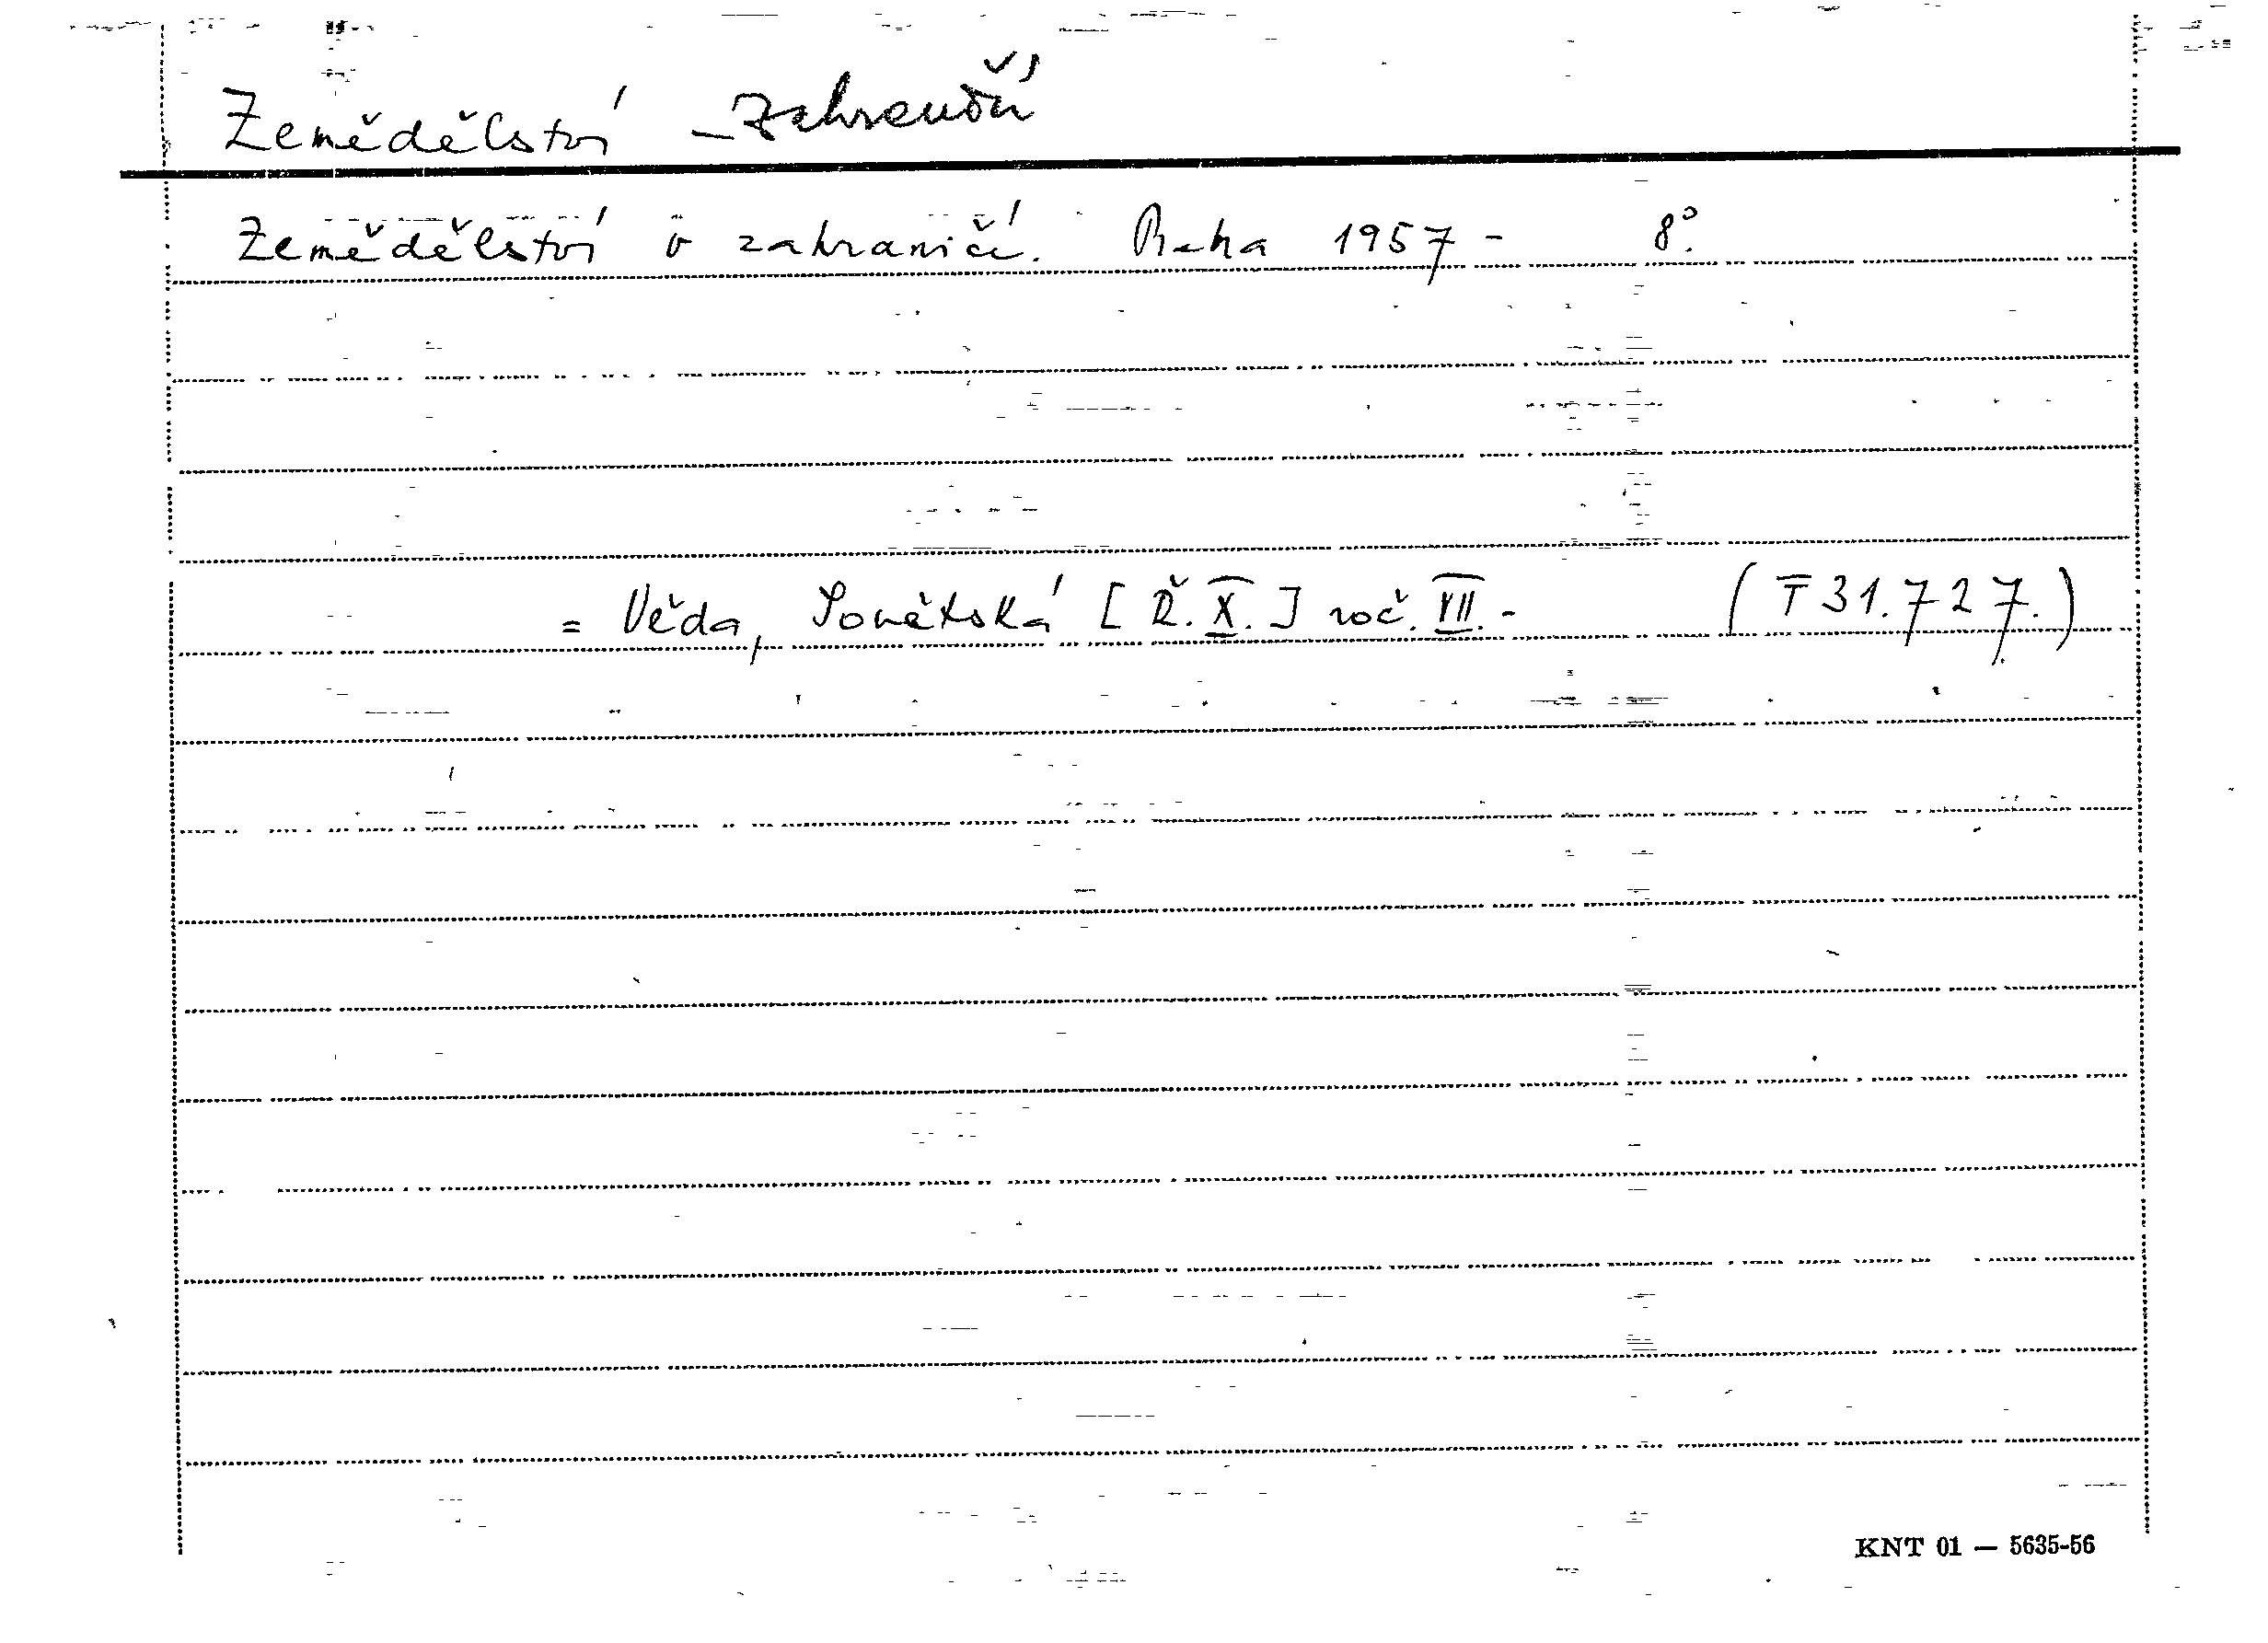 Zemědělství – Zahraničí
Zemědělství v zahraničí. Praha 1957 - 8°.
= Věda, Sovětská [Ř. X.] roč. VII. - (T 31.727.)
KNT 01 — 5635-56